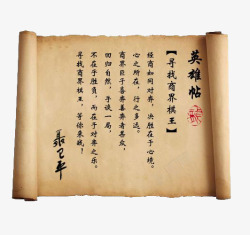 英雄帖
【寻找商界棋王】
经商如同对弈，决胜在于心境。
心之所在，行之多远。
商界臣子善弈善弈者甚众，
回归自然，手谈一局，
不在于胜负，而在于对弈之乐。
寻找商界棋王，等你来战！
聂卫平